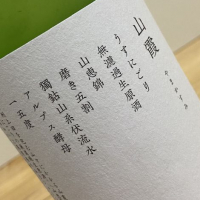 山霞
やまかすみ
うすにごり
無濾過生原酒
山恵錦
磨き五割
獨鈷山系伏流水
アルプス酵母
一五度